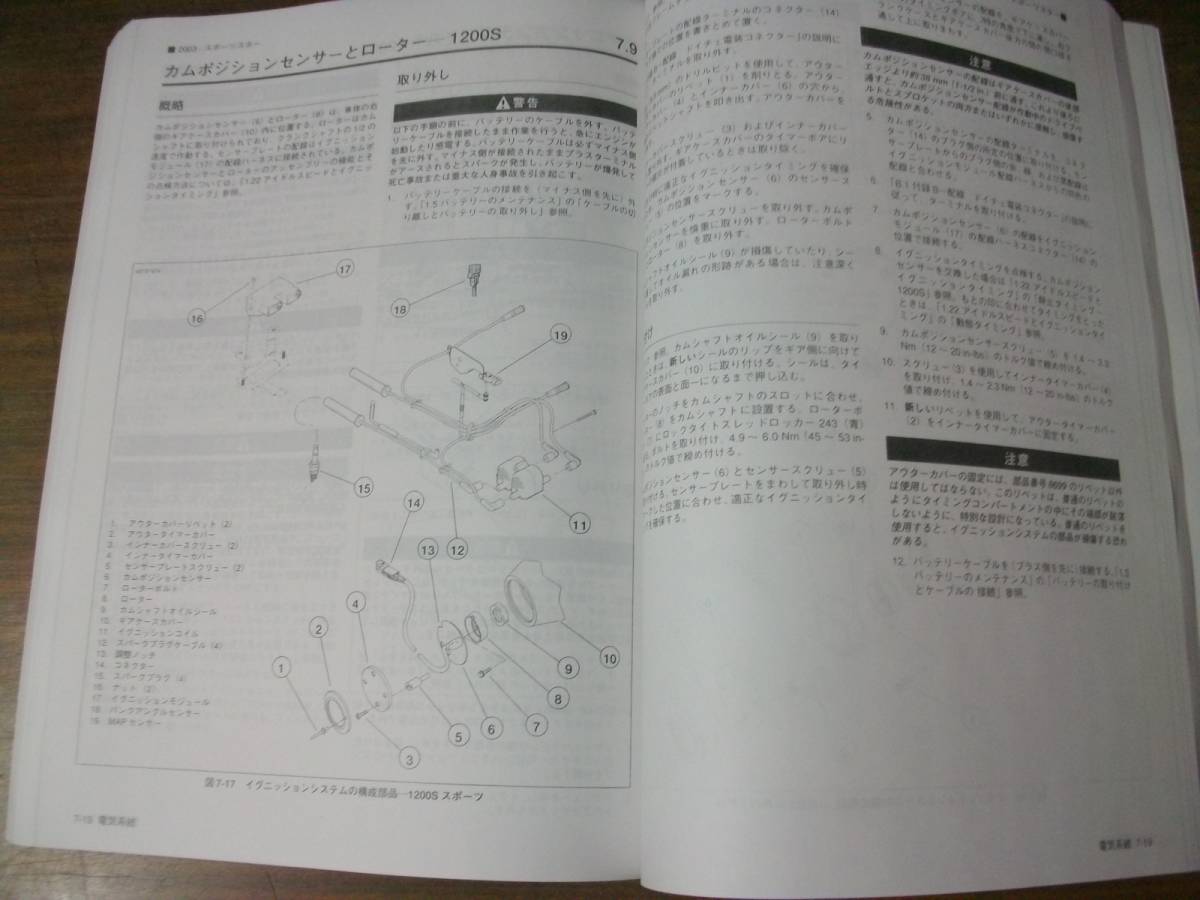 ■ 2003 スポーツスター
カムポジションセンサーとローター — 1200S
7.9
概略
カムポジションセンサー (6) とローター (8) は、車体の右
側のギアケースカバー (10) 内に位置する。ローターはカム
シャフトに取り付けられており、クランクシャフトの1/2の
速度で作動する。センサープレートの配線はイグニッション
モジュール (17) の配線ハーネスに接続されている。カムポ
ジションセンサーとローターのアッセンブリーの機能とそ
の点検方法については、「1.22 アイドルスピードとイグニッ
ションタイミング」参照。
取り外し
警告
以下の手順の前に、バッテリーのケーブルを外す。バッテ
リーケーブルを接続したまま作業を行うと、急にエンジンが
始動したり感電する。バッテリーケーブルは必ずマイナス側
を先に外す。マイナス側が接続されたままプラスターミナル
がアースされるとスパークが発生し、バッテリーが爆発して
死亡事故または重大な人身事故を引き起こす。
1. バッテリーケーブルの接続を (マイナス側を先に) 外
す。「1.5 バッテリーのメンテナンス」の「ケーブルの切
り離しとバッテリーの取り外し」参照。
17
16
18
19
15
14
13
12
11
4
2
1
10
9
8
7
6
5
3
1. アウターカバーリベット (2)
2. アウタータイマーカバー
3. インナーカバースクリュー (2)
4. インナータイマーカバー
5. センサープレートスクリュー (2)
6. カムポジションセンサー
7. ローターボルト
8. ローター
9. カムシャフトオイルシール
10. ギアケースカバー
11. イグニッションコイル
12. スパークプラグケーブル (4)
13. 調整ノッチ
14. コネクター
15. スパークプラグ (4)
16. ナット (2)
17. イグニッションモジュール
18. バンクアングルセンサー
19. MAPセンサー
図7-17 イグニッションシステムの構成部品—1200S スポーツ
7-18 電気系統
ジュールの配線ターミナルのコネクター (14)
の位置を書きとめて置く。
配線 ドイチェ電装コネクター」の説明に
を取り外す。
のドリルビットを使用して、アウター
のリベット (1) を削りとる。アウター
(4) とインナーカバー (6) の穴から、
シャフトを叩き出す。アウターカバーを
スクリュー (3) およびインナーカバー
す。ギアケースカバーのタイマーボアにリ
が付着しているときは取り除く。
適正なイグニッションタイミングを確保
カムポジションセンサー (6) のセンサース
(5) の位置をマークする。
ションセンサースクリューを取り外す。カムポ
センサーを慎重に取り外す。ローターボルト
ーター (8) を取り外す。
ャフトオイルシール (9) が損傷していたり、シー
オイル漏れの形跡がある場合は、注意深く
取り外す。
参照。カムシャフトオイルシール (9) を取り
きは、新しいシールのリップをギア側に向けて
ースカバー (10) に取り付ける。シールは、タイ
の表面と面一になるまで押し込む。
ーのノッチをカムシャフトのスロットに合わせ、
ー (8) をカムシャフトに設置する。ローターボ
にロックタイトスレッドロッカー 243 (青)
ボルトを取り付け、4.9 ～ 6.0 Nm (45 ～ 53 in-
トルク値で締め付ける。
ポジションセンサー (6) とセンサースクリュー (5)
付ける。センサープレートをまわして取り外し時
クした位置に合わせ、適正なイグニッションタイ
を確保する。
通して上に取りまわす。
注意
カムポジションセンサーの配線はギアケースカバーの後部
エッジより約 38 mm [1-1/2 in.] 前に通す。これより後ろに
通すと、カムポジションセンサー配線が作動中のドライブベ
ルトとスプロケットの両方またはいずれかに接触し、損傷す
る危険性がある。
5.
6. 「B.1 付録 B—配線 ドイチェ電装コネクター」の説明に
従って、ターミナルを取り付ける。
7. カムポジションセンサー (6) の配線をイグニッション
モジュール (17) の配線ハーネスコネクター (14) の
位置で接続する。
8. イグニッションタイミングを点検する。カムポジション
センサーを交換した場合は「1.22 アイドルスピードと
イグニッションタイミング」の「静止タイミング—
1200S」参照。もとの印に合わせてタイミングをとった
ときは、「1.22 アイドルスピードとイグニッションタイ
ミング」の「動態タイミング」参照。
9. カムポジションセンサースクリュー (5) を 1.4 ～ 2.3
Nm (12 ～ 20 in-lbs) のトルク値で締め付ける。
10. スクリュー (3) を使用してインナータイマーカバー (4)
を取り付け、1.4 ～ 2.3 Nm (12 ～ 20 in-lbs) のトルク
値で締め付ける。
11. 新しいリベットを使用して、アウタータイマーカバー
(2) をインナータイマーカバーに固定する。
注意
アウターカバーの固定には、部品番号 8699 のリベット以外
は使用してはならない。このリベットは、普通のリベットの
ようにタイミングコンパートメントの中にその端部が脱落
しないように、特別な設計になっている。普通のリベットを
使用すると、イグニッションシステムの部品が損傷する恐れ
がある。
12. バッテリーケーブルを (プラス側を先に) 接続する。「1.5
バッテリーのメンテナンス」の「バッテリーの取り付け
とケーブルの接続」参照。
電気系統 7-19